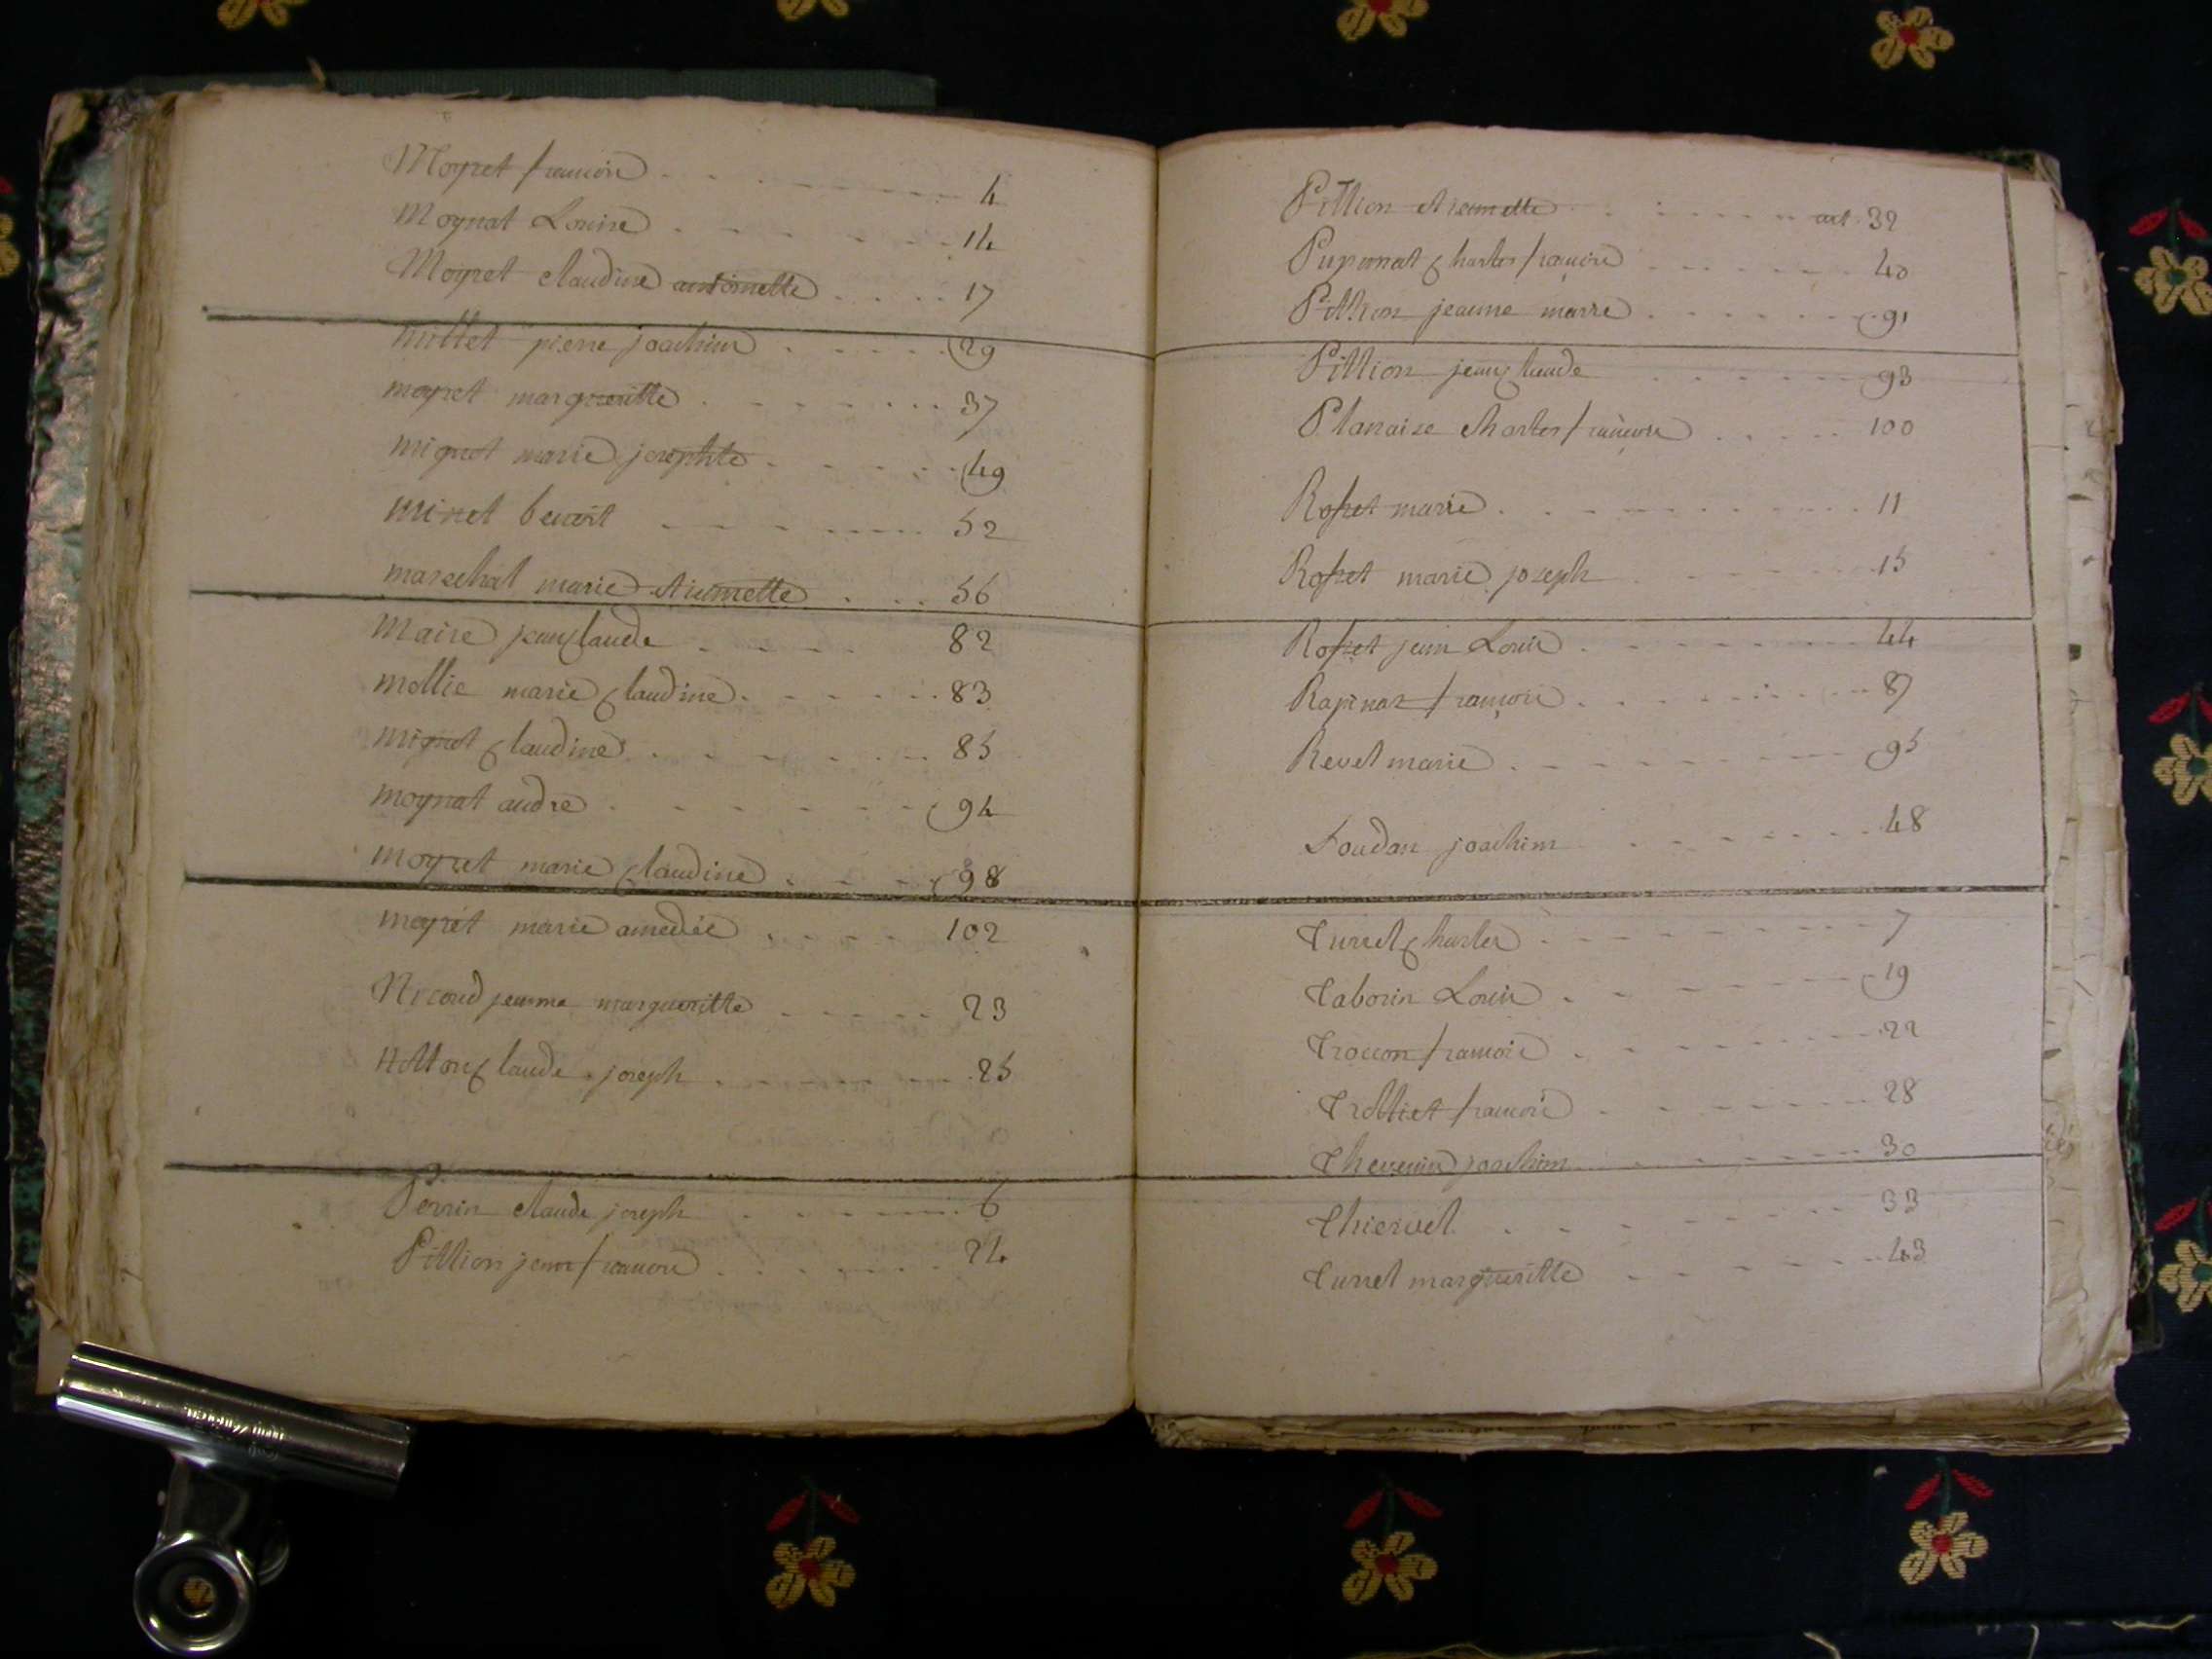 Moyret françois 4
Moynat Louise 14
Moyret claudine antoinette 17
millet pierre joachim 29
moyret margueritte 37
mignot marie josephte 49
minet benoit 52
marechal marie étiennette 56
Maire jean Claude 82
mollie marie Claudine 83
mignot Claudine 85
moynat andre 94
moyret marie Claudine 98
moyret marie amedée 102
Nicoud jeanne margueritte 23
Notton Claude joseph 25
Perrin claude joseph 6
Pittion jean françois 24
Pittion étiennette art. 32
Charles françois 40
Pittion jeanne marie 91
Pittion jean Claude 93
Planaise charles françois 100
Rosset marie 11
Rosset marie joseph 15
Rosset jean Louis 44
Rapinaz françois 87
Revel marie 95
Soudan joachim 48
Turrel Charles 7
Taborin Louis 19
Troccon françois 22
Trolliet françois 28
Thevenin joachim 30
Thiervel 33
Turrel margueritte 43